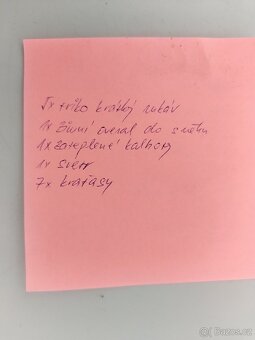 5x triko krátký rukáv
1x zimní overal do sněhu
1x zateplené kalhoty
1x svetr
7x kraťasy
Bazoš.cz